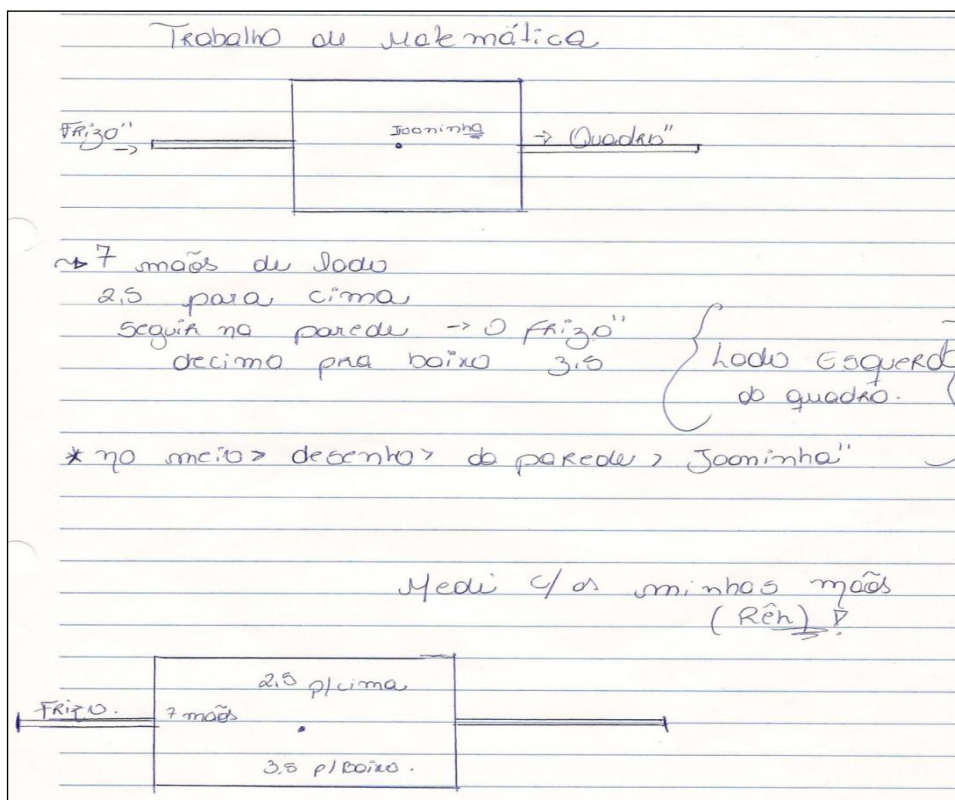 Trabalho de Matemática
Joaninha
Frizo" → → Quadro"
→ 7 maõs de lado
2,5 para cima
seguir na parede → O Frizo"
decimo pra baixo 3,5
Lado Esquerdo
do quadro.
* no meio > desenho > da parede > Joaninha"
Medi c/ as minhas maõs
(Rên) !
2,5 p/ cima
Frizo. 7 maõs
3,5 p/ Baixo.